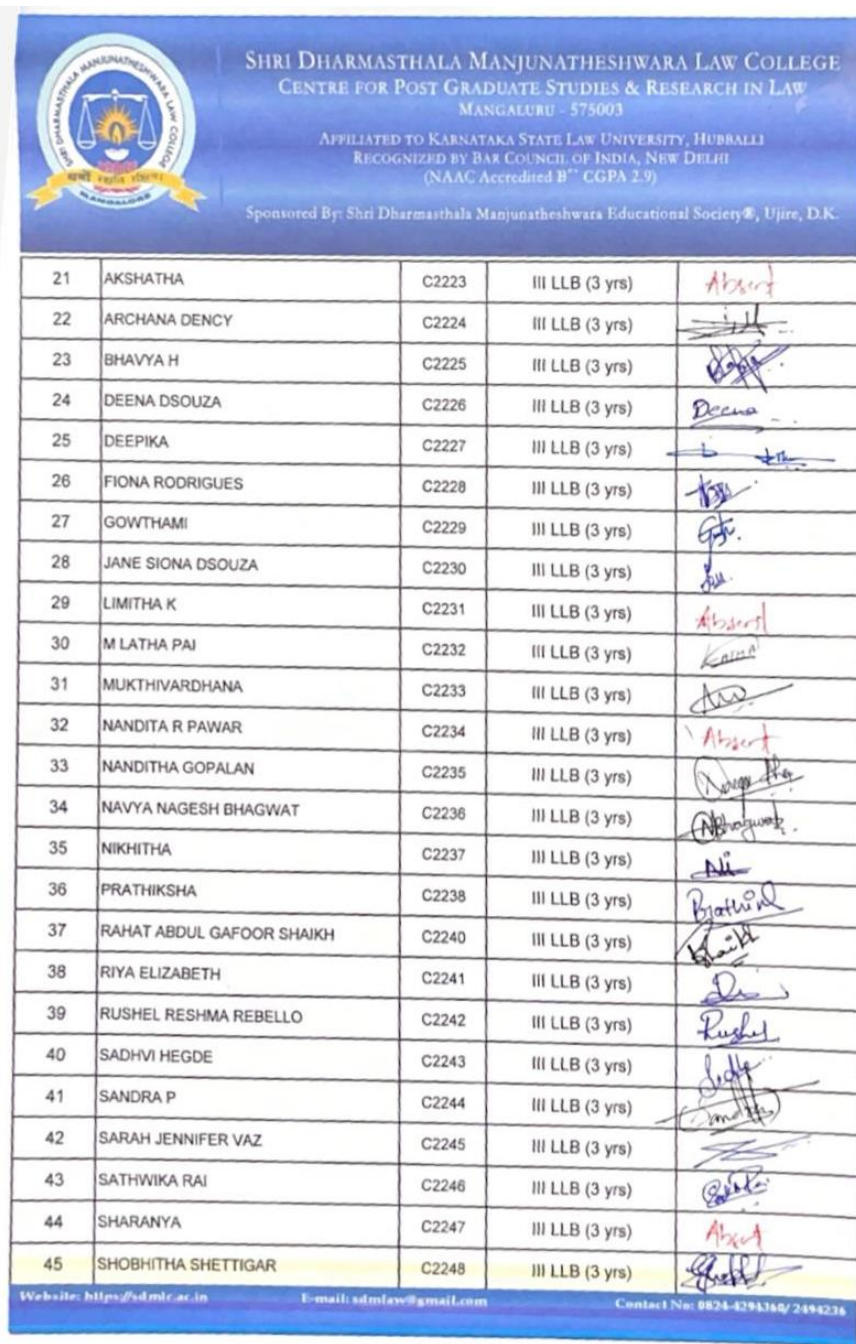 SHRI DHARMASTHALA MANJUNATHESHWARA LAW COLLEGE
CENTRE FOR POST GRADUATE STUDIES & RESEARCH IN LAW
MANGALURU - 575003
AFFILIATED TO KARNATAKA STATE LAW UNIVERSITY, HUBBALLI
RECOGNIZED BY BAR COUNCIL OF INDIA, NEW DELHI
(NAAC Accredited B++ CGPA 2.9)
Sponsored By: Shri Dharmasthala Manjunatheshwara Educational Society®, Ujire, D.K.
SHRI DHARMASTHALA MANJUNATHESHWARA LAW COLLEGE
MANGALORE
21 AKSHATHA C2223 III LLB (3 yrs) Absent
22 ARCHANA DENCY C2224 III LLB (3 yrs)
23 BHAVYA H C2225 III LLB (3 yrs)
24 DEENA DSOUZA C2226 III LLB (3 yrs) Deena
25 DEEPIKA C2227 III LLB (3 yrs)
26 FIONA RODRIGUES C2228 III LLB (3 yrs)
27 GOWTHAMI C2229 III LLB (3 yrs)
28 JANE SIONA DSOUZA C2230 III LLB (3 yrs)
29 LIMITHA K C2231 III LLB (3 yrs) Absent
30 M LATHA PAI C2232 III LLB (3 yrs)
31 MUKTHIVARDHANA C2233 III LLB (3 yrs)
32 NANDITA R PAWAR C2234 III LLB (3 yrs) Absent
33 NANDITHA GOPALAN C2235 III LLB (3 yrs)
34 NAVYA NAGESH BHAGWAT C2236 III LLB (3 yrs) NBhagwat
35 NIKHITHA C2237 III LLB (3 yrs) Ni
36 PRATHIKSHA C2238 III LLB (3 yrs)
37 RAHAT ABDUL GAFOOR SHAIKH C2240 III LLB (3 yrs) Shaikh
38 RIYA ELIZABETH C2241 III LLB (3 yrs)
39 RUSHEL RESHMA REBELLO C2242 III LLB (3 yrs) Rushel
40 SADHVI HEGDE C2243 III LLB (3 yrs)
41 SANDRA P C2244 III LLB (3 yrs)
42 SARAH JENNIFER VAZ C2245 III LLB (3 yrs)
43 SATHWIKA RAI C2246 III LLB (3 yrs)
44 SHARANYA C2247 III LLB (3 yrs) Absent
45 SHOBHITHA SHETTIGAR C2248 III LLB (3 yrs)
Website: https://sdmlc.ac.in E-mail: sdmlaw@gmail.com Contact No: 0824-4294360/ 2494236